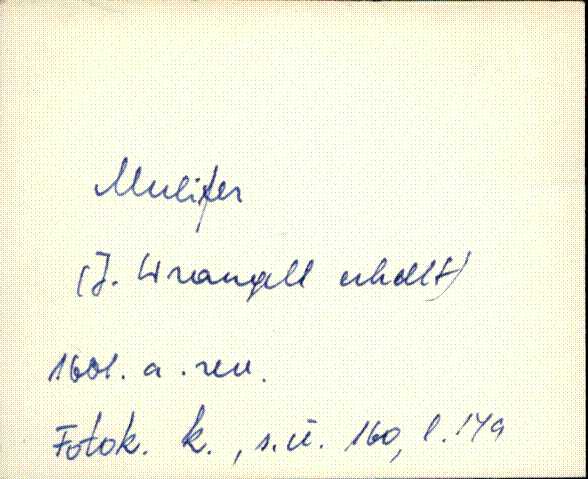 Mulifer
(J. Wrangell erhellt)
1601. a. rev.
Fotok. k., s.ü. 160, l. 149